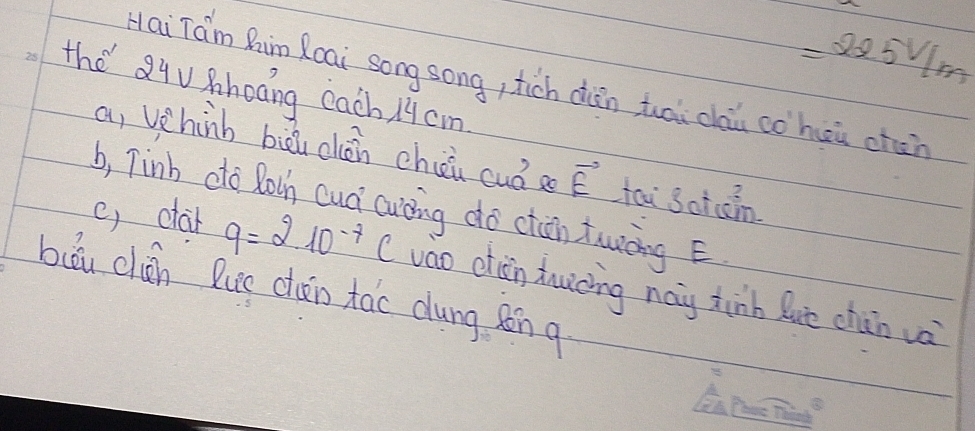 = 225 V/m
Hai Tấm kim loại song song, tích điện trái dấu có hiệu điện
thế 24V khoảng cách 14 cm.
a, vẽ hình biểu diễn chiều của E⃗ tại 3 điểm.
b, Tính độ lớn của cường độ điện trường E.
c, đặt q = 2 10⁻⁷ C vào điện trường này tính lực điện và
biểu diễn lực điện tác dụng lên q
Phúc Thịnh®